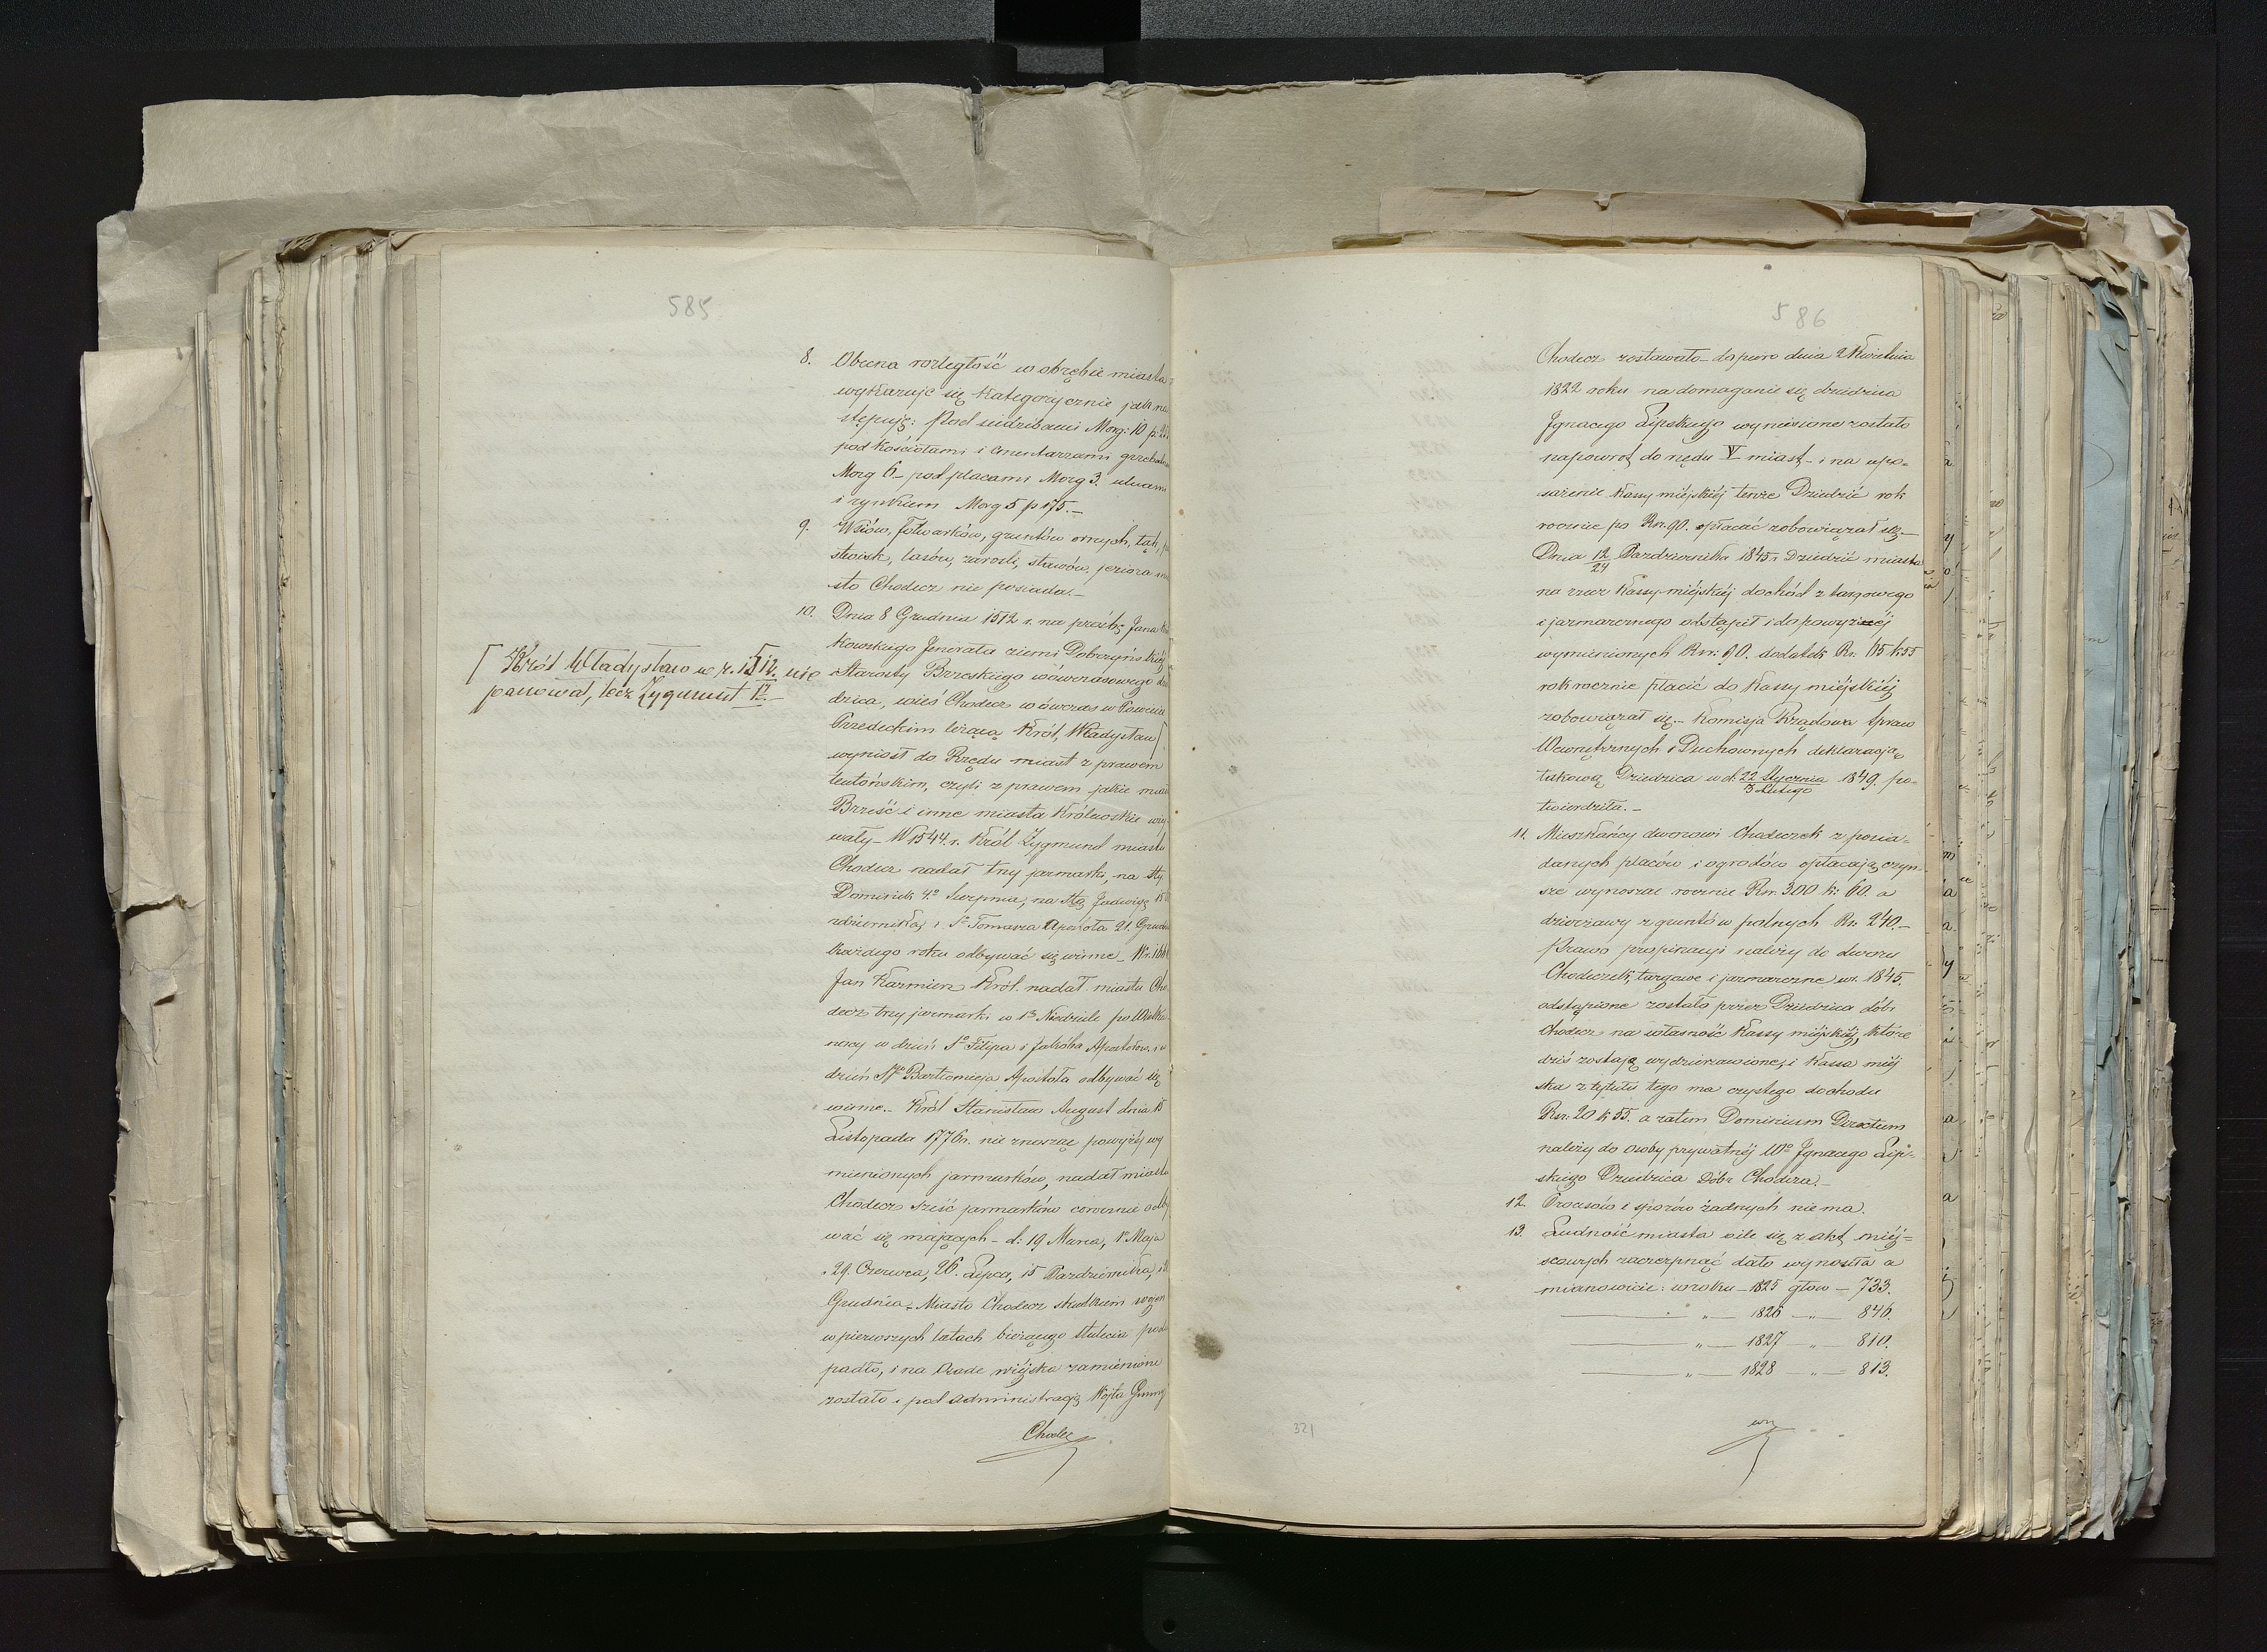 585
8. Obecna rozległość w obrębie miasta
wykazuje się kategorycznie jak na
stępuję: Pod siedzibami Morg: 10 p:
pod Kościołami i Cmentarzami
Morg 6_ pod placami Morg 3. ulicami
i rynkiem Morg 5 p 175._
9. Wsiów, folwarków, gruntów ornych, łąk,
stwisk, lasów, zarośli, stawów, jeziora
sto Chodecz nie posiada._
10. Dnia 8 Grudnia 1512 r. na prośbę Jana
kowskiego Jenerała ziemi Dobrzyńskiéj
Starosty Brzeskiego wówczasowego
dzica, wieś Chodecz wówczas w Powiecie
Przedeckim leżącą Król, Władysław
wyniosł do Rzędu miast z prawem
teutońskim, czyli z prawem jakie
Brześć i inne miasta Królewskie
wały_ W 1544. r. Król Zygmund miastu
Chodecz nadał trzy jarmarki, na
Dominik 4º Sierpnia, na Stą Jadwigę 15
ździernika, i Sº Tomasza Apostoła 21. Grud
każdego roku odbywać się winne_ W r. 166
Jan Kazmierz Król. nadał miastu Cho
decz trzy jarmarki w 1ą Niedziele po Wielka
nocy w dzień Sº Filipa i Jakóba Apostołów. i w
dzień Sgo Bartłomieja Apostoła odbywać się
winne._ Król Stanisław August dnia 15
Listopada 1776r. nie znosząc powyżéj wy
mienionych jarmarków, nadał miastu
Chodecz sześć jarmarków corocznie odby
wać się mających_ d: 19 Marca, 1º Maja
29. Czerwca, 26. Lipca, 15 Października, i
Grudnia_ Miasto Chodecz skutkiem wojen
w pierwszych latach bieżącego stulecia pod
padło, i na Osade wiéjska zamienione
zostało i pod administracją Wójta Gminy
Chodecz
Król Władysław w r. 1512. nie
panował, lecz Zygmunt Iº_
586
Chodecz zostawało_ dopiero dnia 2 Kwietnia
1822 roku na domaganie się dziedzica
Jgnacego Lipskiego wyniesione zostało
napowrot do rzędu V miast_ i na upo=
sażenie Kassy miéjskiéj tenże Dziedzić rok
rocznie po Rsr. 90. opłacać zobowiązał się_
Dnia 12/24 Października 1845 r Dziedzić miasta
na rzecz Kassy miéjskiéj dochód z targowego
i jarmarcznego odstąpił i do powyżéj
wymienionych Rsr: 90. dodatek Rs: 65 k 55
rok rocznie płacić do Kassy miéjskiéj
zobowiązał się._ Komisja Rządowa Spraw
Wewnętrznych i Duchownych deklaracją
takową Dziedzica w d. 22 Stycznia/3 Lutego 1849. po=
twierdziła._
11. Mieszkańcy dworowi Chodeczek z posia=
danych placów i ogrodów opłacają czyn=
sze wynoszące rocznie Rsr. 300 k: 60. a
dzierżawy z gruntów polnych Rs. 240._
Prawo propinacyi należy do dworu
Chodeczek, targowe i jarmarczne w r. 1845.
odstąpione zostało przez Dziedzica dóbr
Chodecz na własność Kassy miéjskiéj, które
dziś zostają wydzierzawione, i Kassa miéj
ska z tytułu tego ma czystego dochodu
Rsr. 20 k 55. a zatem Dominium Directum
należy do osoby prywatnéj Wº Jgnacego Lip=
skiego Dziedzica Dóbr Chodcza._
12. Procesów i sporów żadnych nie ma.
13. Ludność miasta o ile się z akt miéj=
scowych zaczerpnąć dało wynosiła a
mianowicie: w roku_ 1825 głów_ 733.
" 1826 " 846.
" 1827 " 810.
" 1828 " 813.
wr
321